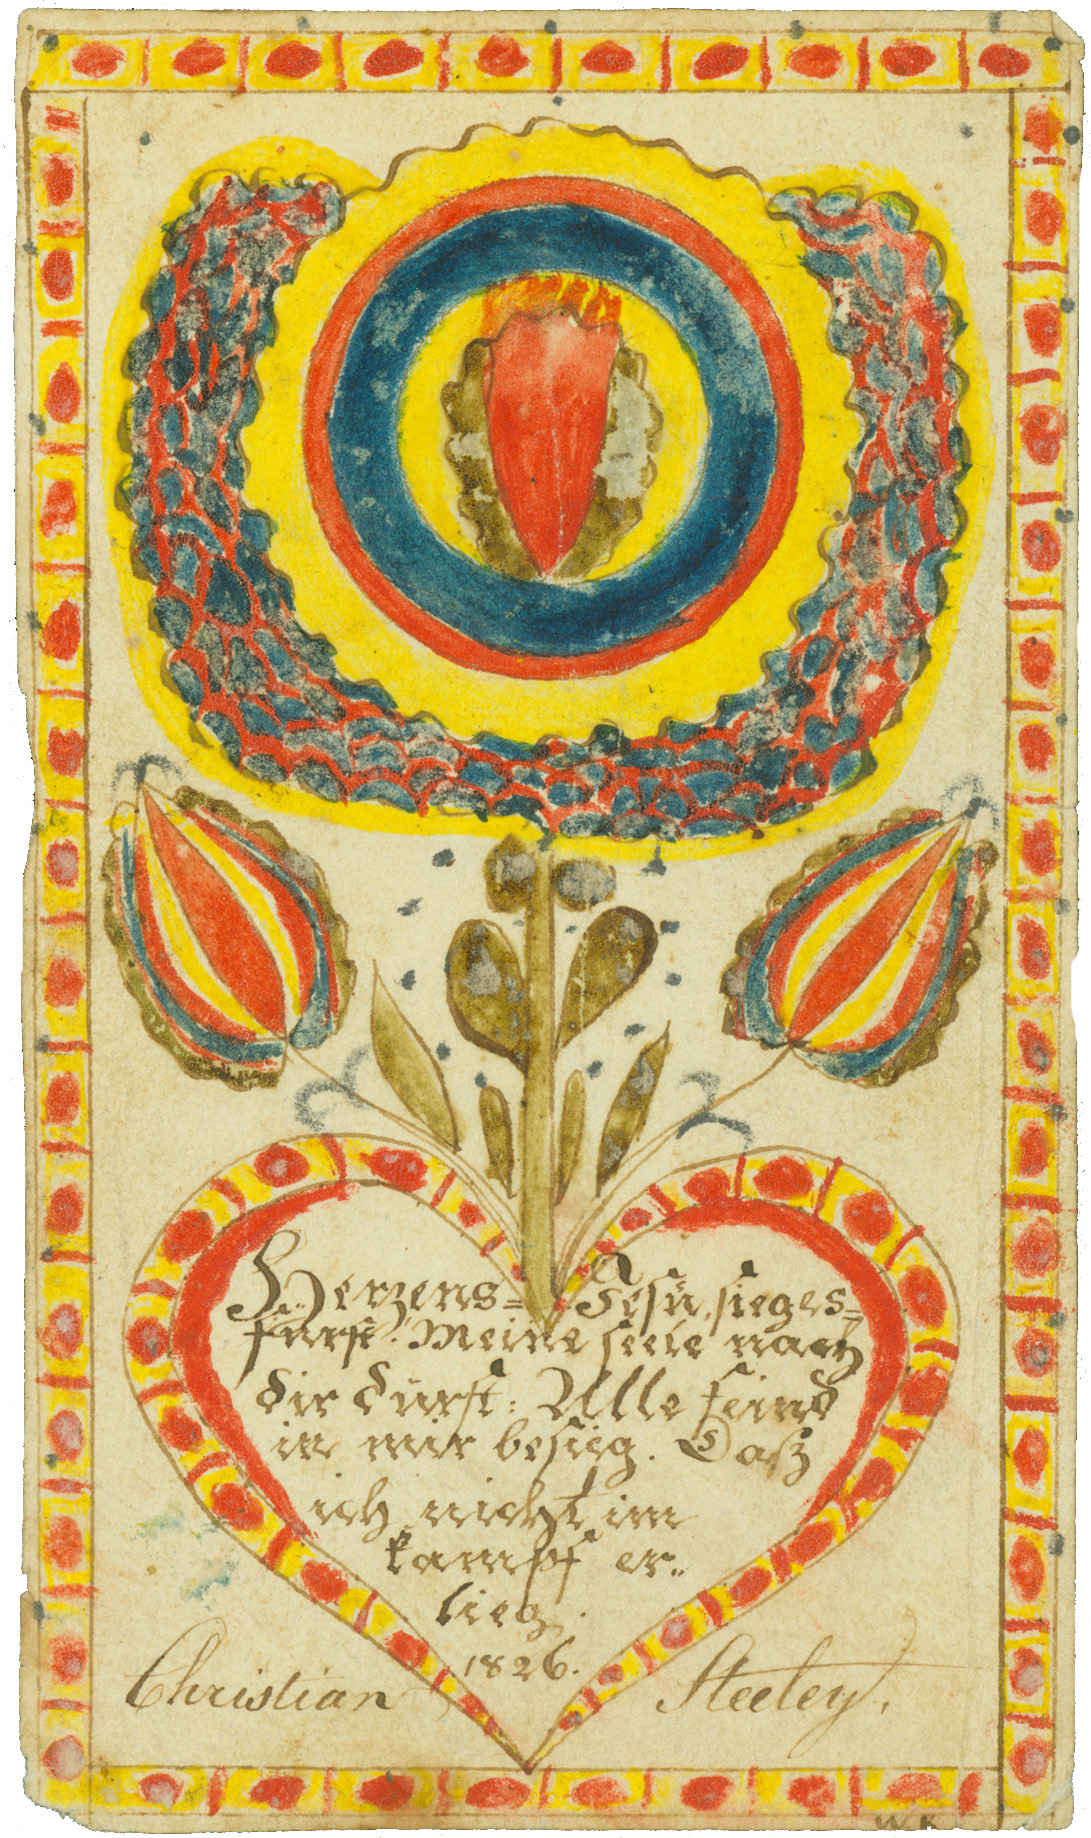 Herzens= Jesu, sieges=
fürst! Meine seele nach
dir dürst: Alle feind
in mir besieg. Daß
ich nicht im
kampf er=
lieg.
1826.
Christian Steeley.